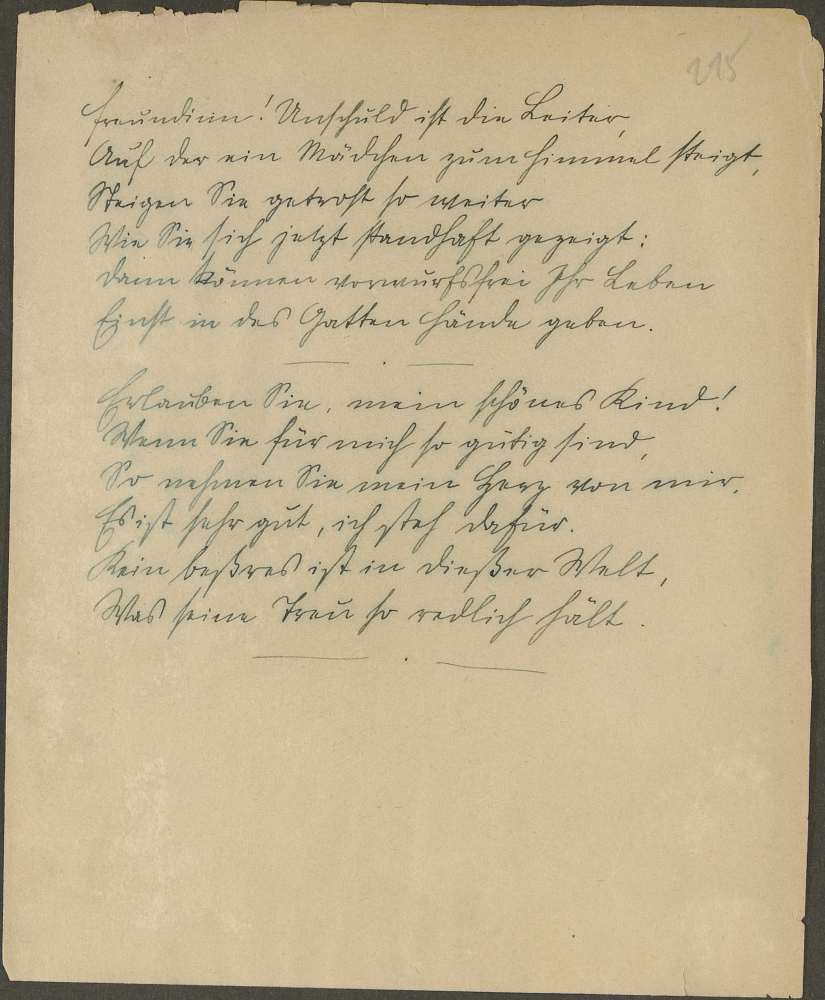 215
Freundinn! Unschuld ist die Leiter,
Auf der ein Mädchen zum Himmel steigt,
Steigen Sie getrost so weiter
Wie Sie sich jetzt standhaft gezeigt:
Dann können vorwurfsfrei Ihr Leben
Einst in des Gatten Hände geben.
Erlauben Sie, mein schönes Kind!
Wenn Sie für mich so gütig sind,
So nehmen Sie mein Herz von mir,
Es ist sehr gut, ich steh dafür.
Kein beßres ist in dießer Welt,
Was seine Treu so redlich hält.